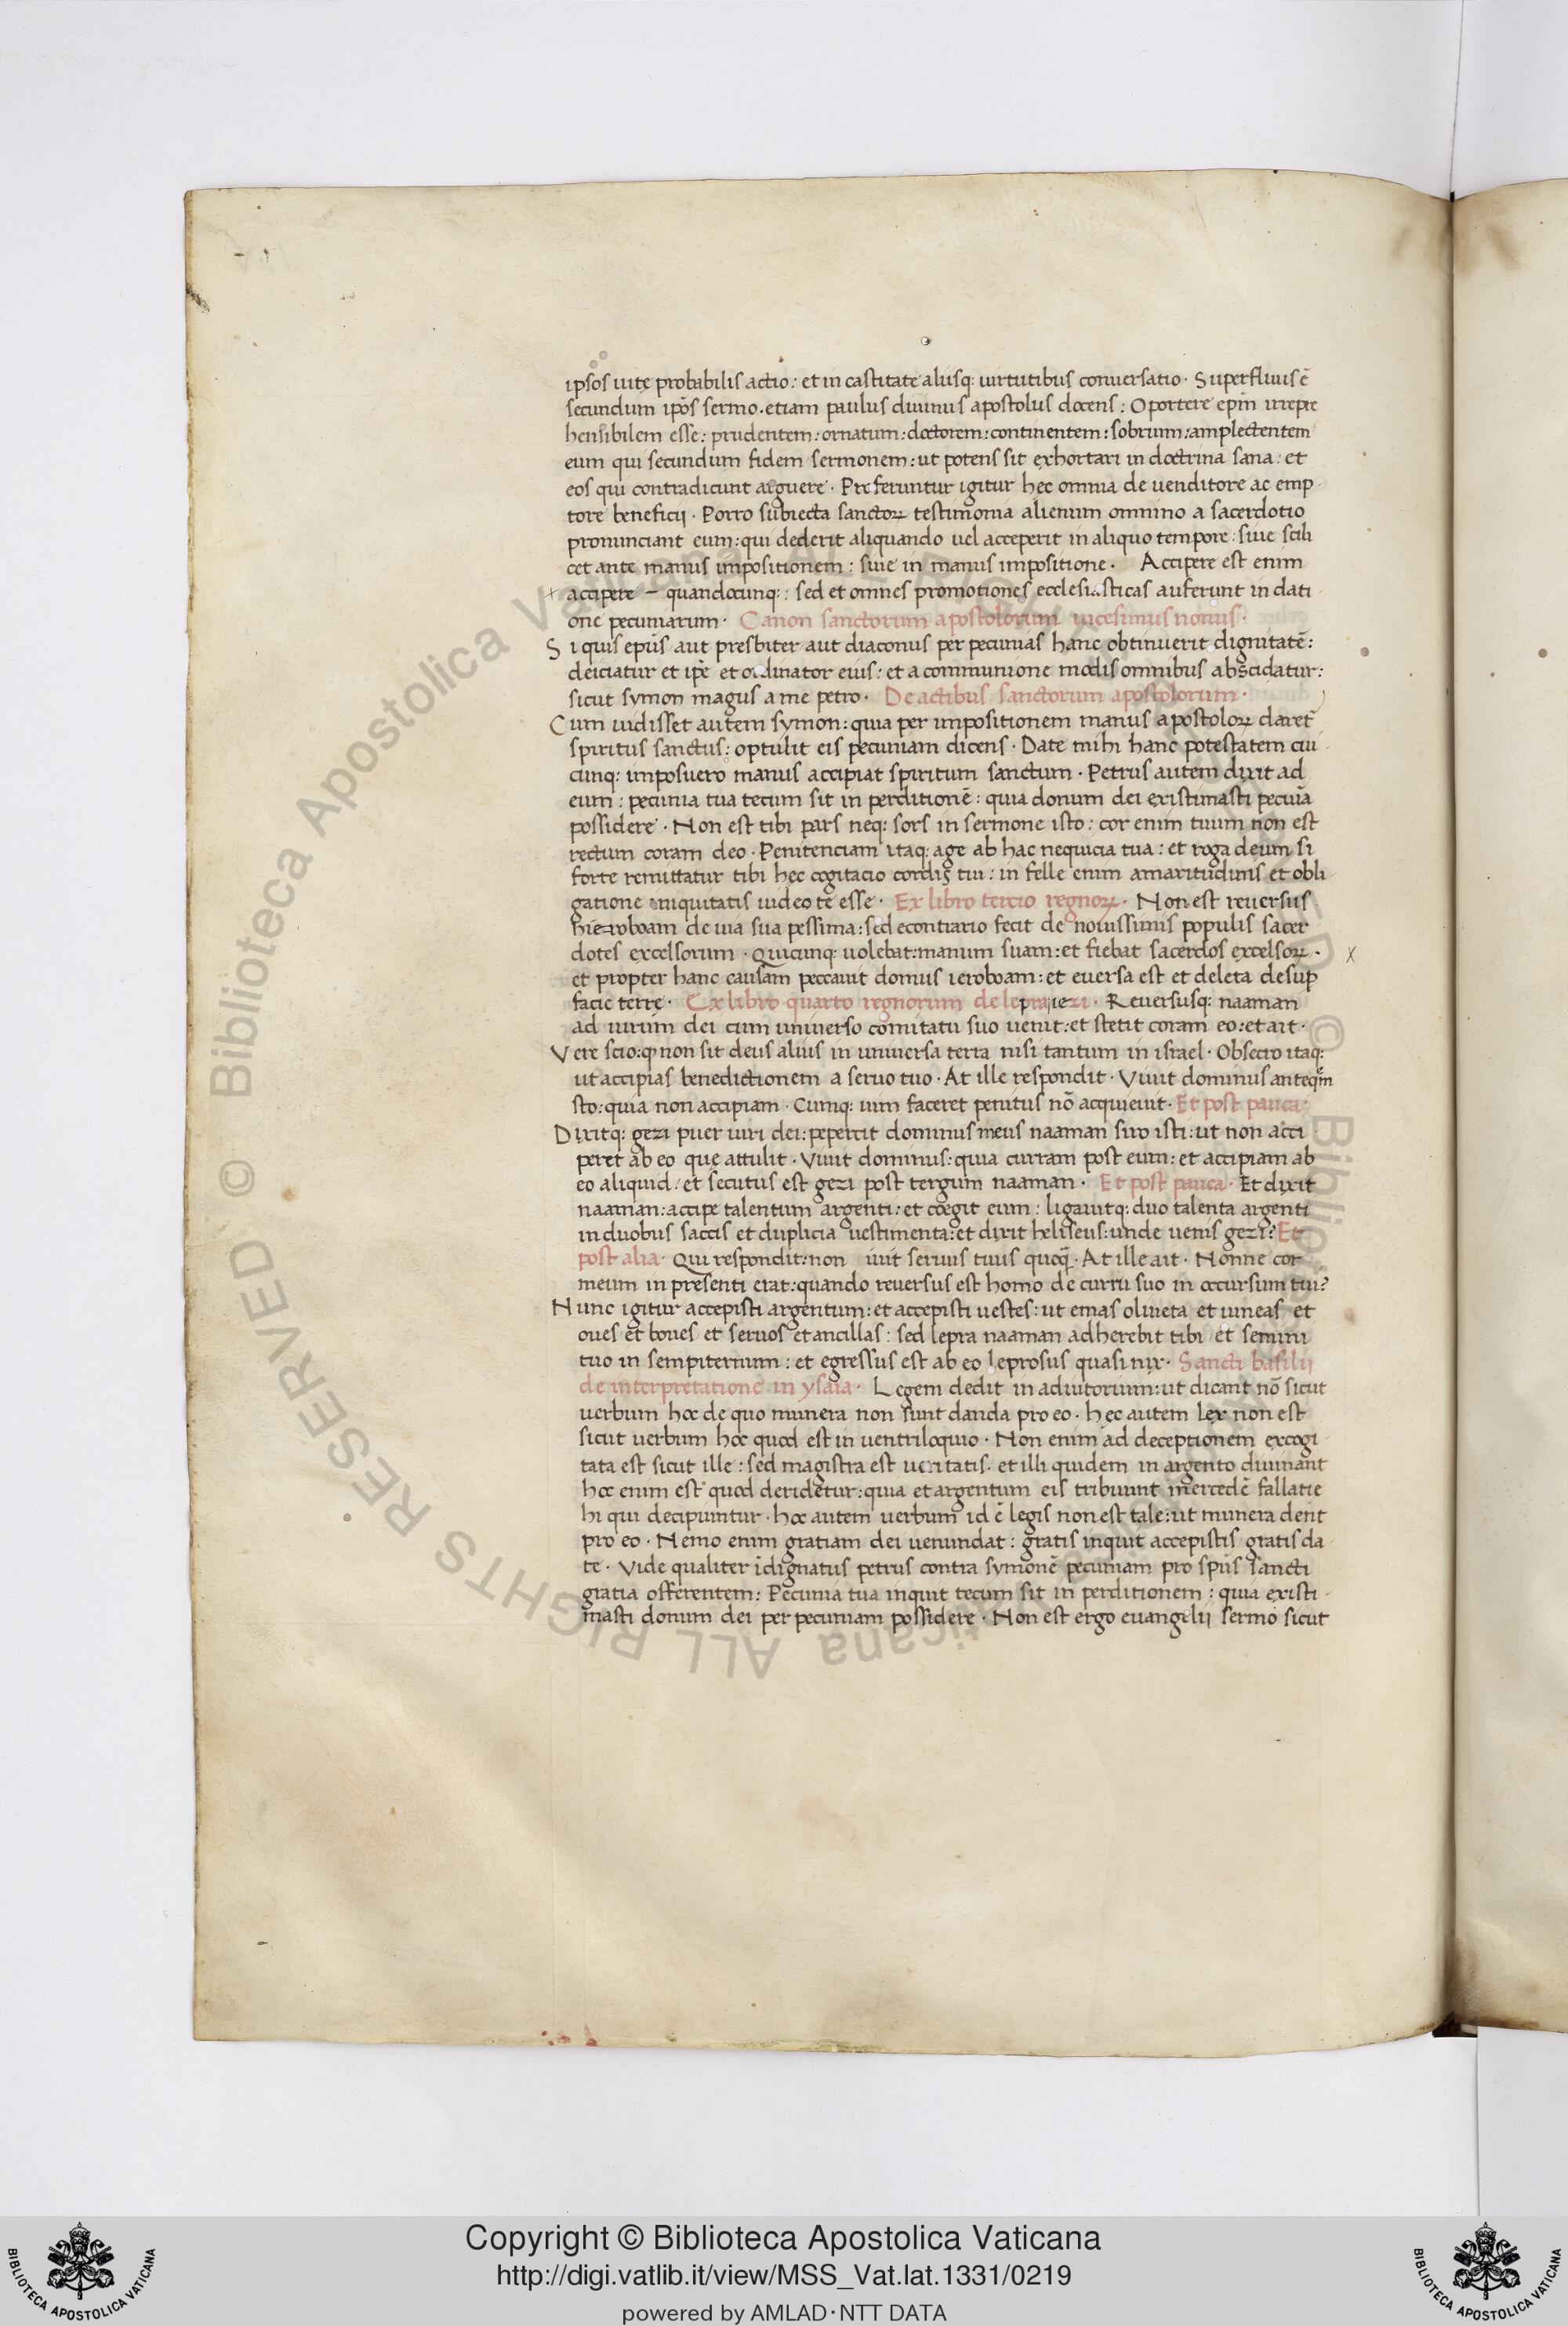 ipsos uitę probabilis actio: et in castitate aliisq: uirtutibus conuersatio. Superfluus ē
secundum ip̄os sermo. etiam paulus diuinus apostolus docens: Oportere ep̄m irrepre
hensibilem esse: prudentem: ornatum: doctorem: continentem: sobrium: amplectentem
eum qui secundum fidem sermonem: ut potens sit exhortari in doctrina sana: et
eos qui contradicunt arguere. Preferuntur igitur hec omnia de uenditore ac emp-
tore beneficij. Porro subiecta sanctoꝝ testimonia alienum omnino a sacerdotio
pronunciant eum: qui dederit aliquando uel acceperit in aliquo tempore: siue scili
cet ante manus impositionem: siue in manus impositione. Accipere est enim
accipere – quandocunq:: sed et omnes promotiones ecclesiasticas auferunt in dati-
one pecuniarum. Canon sanctorum apostolorum uicesimus nonus.
Si quis ep̄us aut presbiter aut diaconus per pecunias hanc obtinuerit dignitatē:
deiciatur et ip̄e et ordinator eius: et a communione modis omnibus abscidatur:
sicut symon magus a me petro. De actibus sanctorum apostolorum.
Cum uidisset autem symon: quia per impositionem manus apostoloꝝ daret̄
spiritus sanctus: optulit eis pecuniam dicens. Date mihi hanc potestatem cui-
cunq: imposuero manus accipiat spiritum sanctum. Petrus autem dixit ad
eum: pecunia tua tecum sit in perditionē: quia donum dei existimasti pecuīa
possidere. Non est tibi pars neq: sors in sermone isto: cor enim tuum non est
rectum coram deo. Penitenciam itaq: age ab hac nequicia tua: et roga deum si
forte remittatur tibi hęc cogitacio cordis tui: in felle enim amaritudinis et obli-
gatione iniquitatis uideo te esse. Ex libro tercio regnoꝝ. Non est reuersus
hieroboam de uia sua pessima: sed econtrario fecit de nouissimis populis sacer
dotes excelsorum. Quicunq: uolebat: manum suam: et fiebat sacerdos excelsoꝝ.
et propter hanc causam peccauit domus ieroboam: et euersa est et deleta desuꝑ
facie terrę. Ex libro quarto regnorum de lepra iezi. Reuersusq: naaman
ad uirum dei cum uniuerso comitatu suo uenit: et stetit coram eo: et ait.
Vere scio: ꝙ non sit deus alius in uniuersa terra nisi tantum in israel. Obsecro itaq:
ut accipias benedictionem a seruo tuo. At ille respondit. Viuit dominus ante quem
sto: quia non accipiam. Cumq: uim faceret penitus nō acquieuit. Et post pauca.
Dixitq: gezi puer uiri dei: pepercit dominus meus naaman siro isti: ut non acci
peret ab eo quę attulit. Viuit dominus: quia curram post eum: et accipiam ab
eo aliquid: et secutus est gezi post tergum naaman. Et post pauca. Et dixit
naaman: accipe talentum argenti: et coegit eum: ligauitq: duo talenta argenti
in duobus saccis et duplicia uestimenta: et dixit heliseus: unde uenis gezi? Et
post alia. Qui respondit: non iuit seruus tuus quoq̄. At ille ait. Nonne cor
meum in presenti erat: quando reuersus est homo de curru suo in occursum tui?
Nunc igitur accepisti argentum: et accepisti uestes: ut emas oliueta et uineas et
oues et boues et seruos et ancillas: sed lepra naaman adherebit tibi et semini
tuo in sempiternum: et egressus est ab eo leprosus quasi nix. Sancti basilii
de interpretatione in ysaia. Legem dedit in adiutorium: ut dicant nō sicut
uerbum hoc de quo munera non sunt danda pro eo. hęc autem lex non est
sicut uerbum hoc quod est in uentriloquio. Non enim ad deceptionem excogi-
tata est sicut ille: sed magistra est ueritatis. et illi quidem in argento diuinant
hoc enim est quod deridetur: quia et argentum eis tribuunt mercedē fallatie
hi qui decipiuntur. hoc autem uerbum id ē legis non est tale: ut munera dent
pro eo. Nemo enim gratiam dei uenundat: gratis inquit accepistis gratis da
te. Vide qualiter īdignatus petrus contra symonē pecuniam pro sp̄us sancti
gratia offerentem: Pecunia tua inquit tecum sit in perditionem: quia existi-
masti donum dei per pecuniam possidere. Non est ergo euangelii sermo sicut
Copyright © Biblioteca Apostolica Vaticana
http://digi.vatlib.it/view/MSS_Vat.lat.1331/0219
powered by AMLAD·NTT DATA
BIBLIOTECA APOSTOLICA VATICANA
BIBLIOTECA APOSTOLICA VATICANA
© Biblioteca Apostolica Vaticana ALL RIGHTS RESERVED © Biblioteca Apostolica Vaticana ALL RIGHTS RESERVED